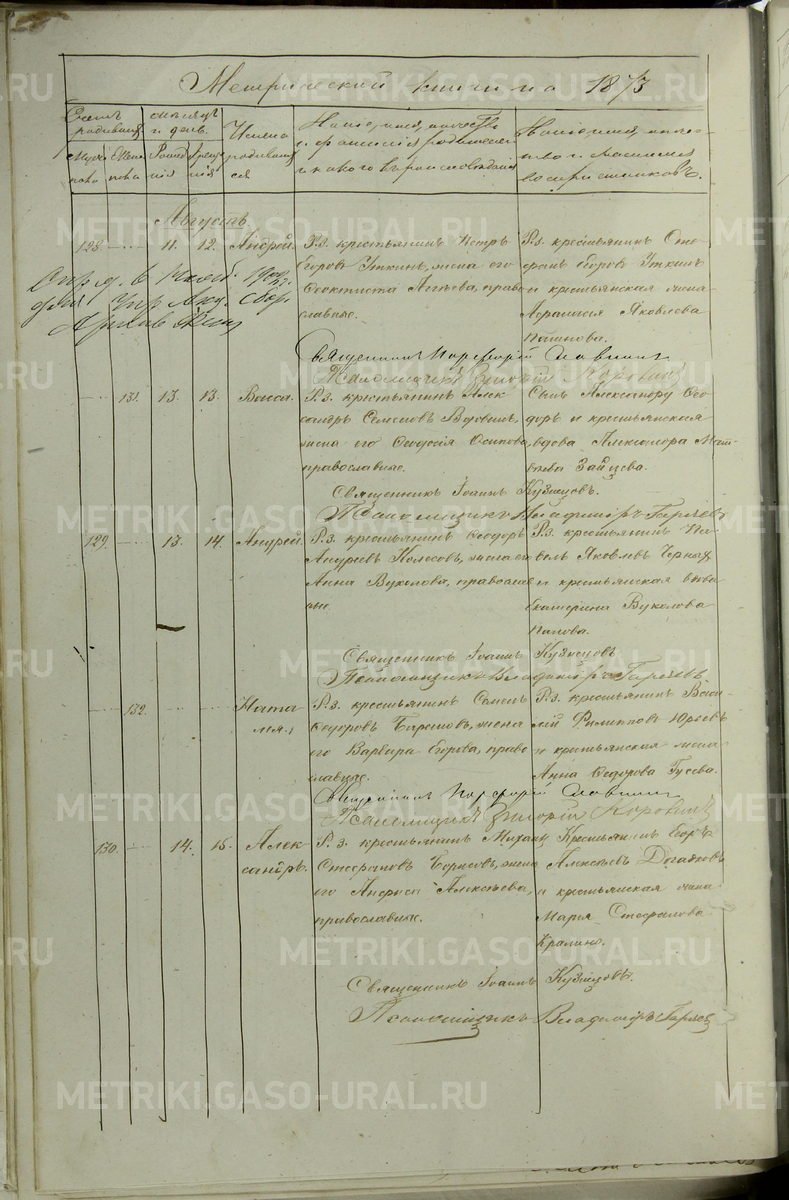 Метрической книги на 1873
Счетъ родившихся
Мужеска
Женска
Месяцъ и день.
Рождения
Крещения
Имена родившихся
Званіе, имя, отчество
и фамилія родителей
и какого вѣроисповѣданія
Званіе, имя, отче-
ство и фамилія
воспріемниковъ.
Августъ
128. 11. 12. Андрей.
Р.з. крестьянинъ Петръ
Егоровъ Уткинъ, жена его
Феоктиста Агѣева, право-
славные.
Р.з. крестьянинъ Сте-
фанъ Егоровъ Уткинъ
и крестьянская жена
Яковлева
Священникъ Порфирій Славнинъ
Псаломщикъ Григорій Коровинъ
131. 13. 13. Васса.
Р.з. крестьянинъ Алек-
сандръ Семеновъ Вдовинъ,
жена его Феодосія Осипова,
православные.
Сынъ Александру Фео-
доръ и крестьянская
вдова Александра Мат-
вѣева Зайцева.
Священникъ Іоаннъ Кузнецовъ.
Псаломщикъ Владиміръ Гаряевъ
129. 13. 14. Андрей.
Р.з. крестьянинъ Феодоръ
Андреевъ Колосовъ, жена его
Анна Вуколова, православ-
ные.
Р.з. крестьянинъ Па-
велъ Яковлевъ Черныхъ
и крестьянская вдова
Екатерина Вуколова
Попова.
Священникъ Іоаннъ Кузнецовъ
Псаломщикъ Владиміръ Гаряевъ
132. Ната-
лья.
Р.з. крестьянинъ Семенъ
Феодоровъ жена
его Варвара Егорова, право-
славные.
Р.з. крестьянинъ Васи-
лій Филипповъ Юрьевъ
и крестьянская жена
Анна Федорова Гусева.
Священникъ Порфирій Славнинъ
Псаломщикъ Григорій Коровинъ
130. 14. 15. Алек-
сандръ.
Р.з. крестьянинъ Михаилъ
Стефановъ Борисовъ, жена
его Анфиса Алексѣева,
православные.
Крестьянинъ Егоръ
Алексѣевъ Догадовъ
и крестьянская жена
Марья Стефанова
Священникъ Іоаннъ Кузнецовъ.
Псаломщикъ Владиміръ Гаряевъ
METRIKI.GASO-URAL.RU